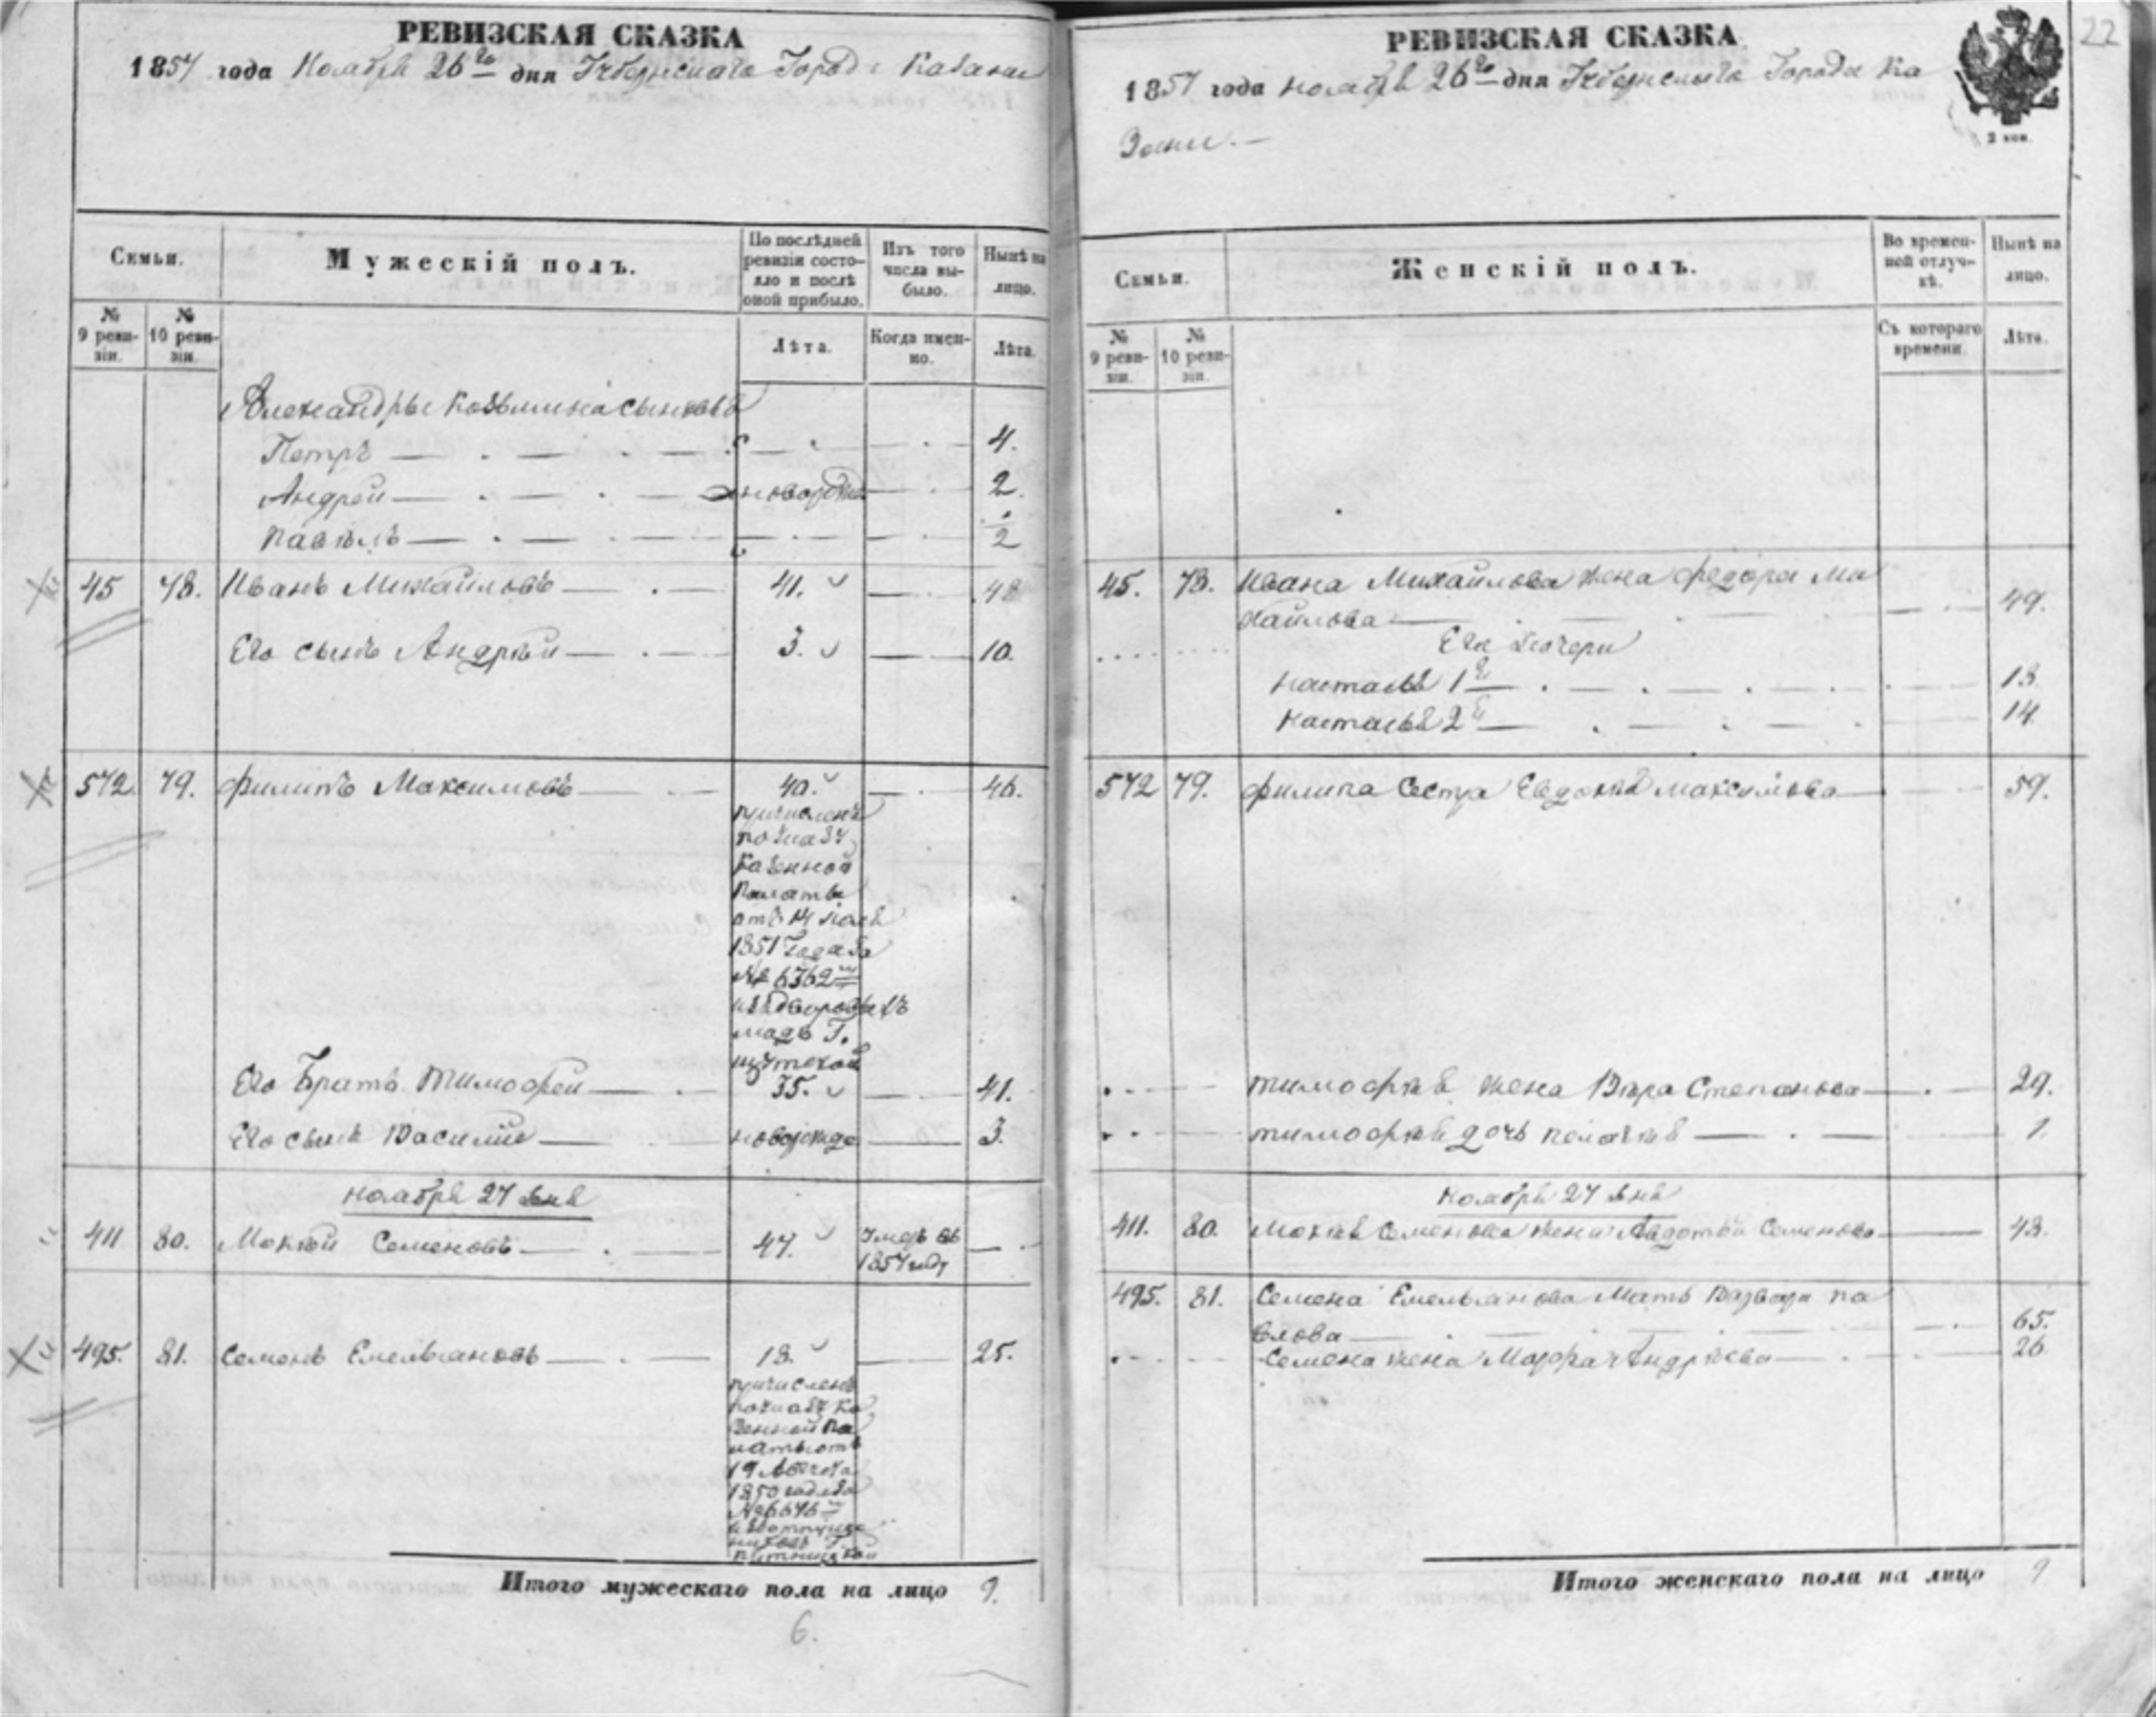 РЕВИЗСКАЯ СКАЗКА
1857 года Ноября 26го дня Губернскаго Города Казани
Семьи.
Мужескій полъ.
По послѣдней ревизіи состояло и послѣ оной прибыло.
Изъ того числа выбыло.
Нынѣ на лицо.
№ 9 ревизіи.
№ 10 ревизіи.
Лѣта.
Когда именно.
Лѣта.
Александры Козьмина сыновья
Петръ 4.
Андрей новорожд 2.
Павелъ ½
45 78. Иванъ Михайловъ 41. 48
Его сынъ Андрѣй 3. 10.
572. 79. Филипъ Максимовъ 40. 46.
причисленъ
по указу
Казенной
Палаты
отъ 14
1851 года за
№ 6362м
изъ дворовыхъ
Г.
Его Братъ Тимофей 35. 41.
Его сынъ Василій новорожде 3.
ноября 27 дня
411 80. Мокѣй Семеновъ 47. Умеръ въ
1857 году
495. 81. Семенъ Емельяновъ 18. 25.
причисленъ
по указу Ка
зенной Па
латы отъ
19
1850 года за
№ 6646м
Итого мужескаго пола на лицо 9.
6.
22
РЕВИЗСКАЯ СКАЗКА
1857 года ноября 26го дня Губернскаго Города Ка
зани.
2 коп.
Семьи.
Женскій полъ.
Во временной отлучкѣ.
Нынѣ на лицо.
№ 9 ревизіи.
№ 10 ревизіи.
Съ котораго времени.
Лѣта.
45. 78. Ивана Михайлова жена Федора Ми
хайлова 49.
Его дочери
Настасья 1я 18
Настасья 2я 14
572 79. Филипа Сестра Евдокія Максимова 59.
Тимофѣя жена Вѣра Степанова 29.
Тимофѣя дочь Пелагѣя 1.
ноября 27 дня
411. 80. Мокѣя Семенова жена Авдотья Семенова 48.
495. 81. Семена Емельянова Мать Варвара Па
влова 65.
Семена жена Марфа Андрѣева 26.
Итого женскаго пола на лицо 9